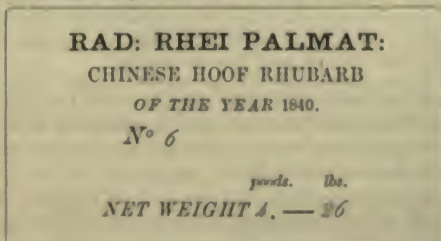 RAD: RHEI PALMAT:
CHINESE HOOF RHUBARB
OF THE YEAR 1840.
No 6
poods. lbs.
NET WEIGHT 4. — 26